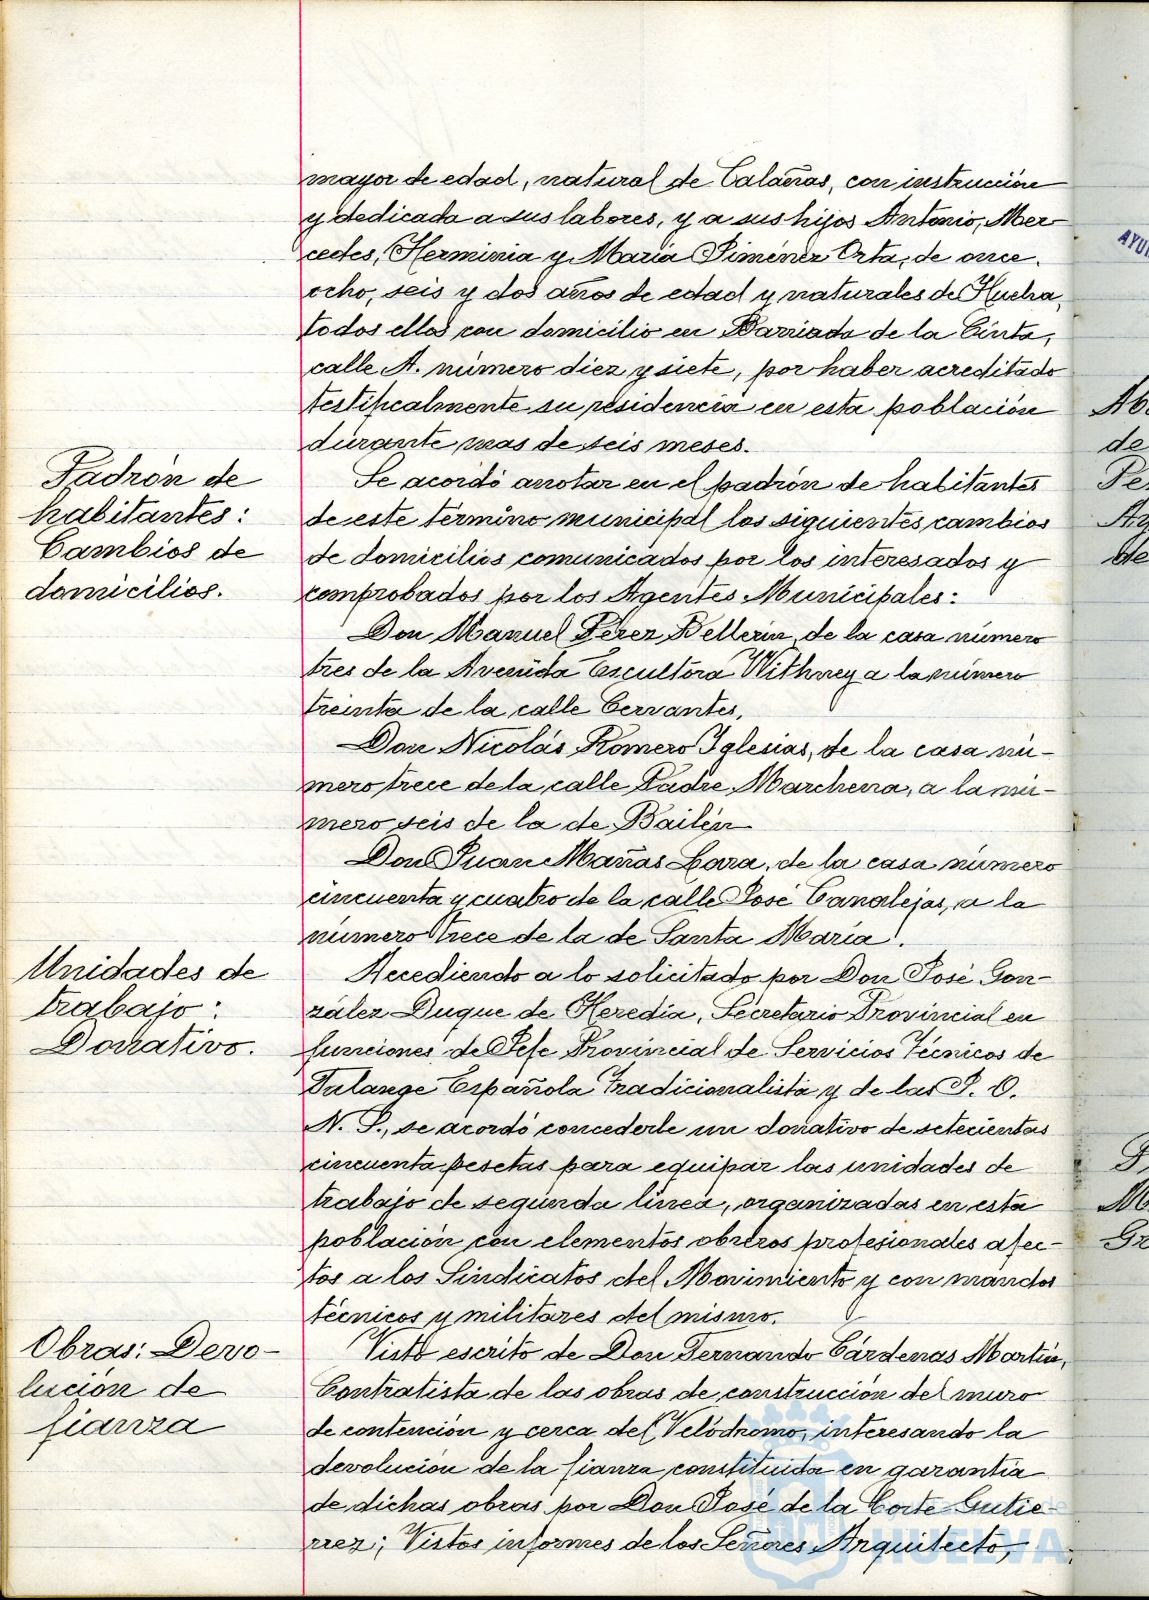 mayor de edad, natural de Calañas, con instrucción
y dedicada a sus labores, y a sus hijos Antonio, Mer-
cedes, Herminia y Maria Jiménez Orta, de once,
ocho, seis y dos años de edad y naturales de Huelva,
todos ellos con domicilio en Barriada de la Cinta,
calle A. número diez y siete, por haber acreditado
testificalmente su residencia en esta población
durante mas de seis meses.
Padrón de
habitantes:
Cambios de
domicilios.
Se acordó anotar en el padrón de habitantes
de este término municipal los siguientes cambios
de domicilios comunicados por los interesados y
comprobados por los Agentes Municipales:
Don Manuel Pérez Bellerin, de la casa número
tres de la Avenida Escultora Withney a la número
treinta de la calle Cervantes,
Don Nicolás Romero Iglesias, de la casa nú-
mero trece de la calle Padre Marchena, a la nú-
mero seis de la de Bailén
Don Juan Mañas Lara, de la casa número
cincuenta y cuatro de la calle José Canalejas, a la
número trece de la de Santa María.
Unidades de
trabajo:
Donativo.
Accediendo a lo solicitado por Don José Gon-
zález Duque de Heredia, Secretario Provincial en
funciones de Jefe Provincial de Servicios Técnicos de
Falange Española Tradicionalista y de las J. O.
N. S., se acordó concederle un donativo de setecientas
cincuenta pesetas para equipar las unidades de
trabajo de segunda línea, organizadas en esta
población con elementos obreros profesionales afec-
tos a los Sindicatos del Movimiento y con mandos
técnicos y militares del mismo.
Obras: Devo-
lución de
fianza
Visto escrito de Don Fernando Cárdenas Martín,
Contratista de las obras de construcción del muro
de contención y cerca del Velódromo, interesando la
devolución de la fianza constituida en garantía
de dichas obras por Don José de la Corte Gutié-
rrez; Vistos informes de los Señores Arquitecto,
HUELVA